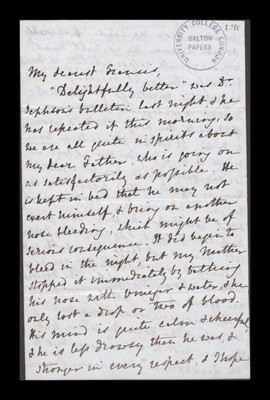 UNIVERSITY COLLEGE LONDON
GALTON
PAPERS
My dearest Francis,
"Delightfully better" was Dr
Jephson's bulletin last night & he
has repeated it this morning. So
we are all quite in spirits about
my dear Father, who is going on
as satisfactorily as possible. He
is kept in bed that he may not
exert himself, & bring on another
nose bleeding, which might be of
serious consequence. It did begin to
bleed in the night, but my Mother
stopped it immediately by bathing
his nose with vinegar & water, & he
only lost a drop or two of blood.
His mind is quite calm & cheerful,
& he is less drowsy than he was, &
stronger in every respect, & I hope